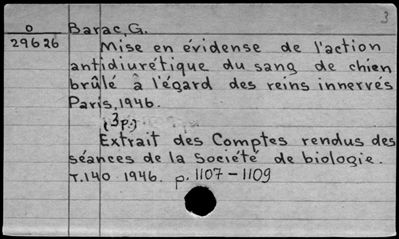 3
O Barac, G.
29626
Mise en évidense de l'action
antidiurétique du sang de chien
brûlé à l'égard des reins innervés
Paris, 1946.
(3p.)
Extrait des Comptes rendus des
séances de la Société de biologie.
T.140 1946. p. 1107-1109